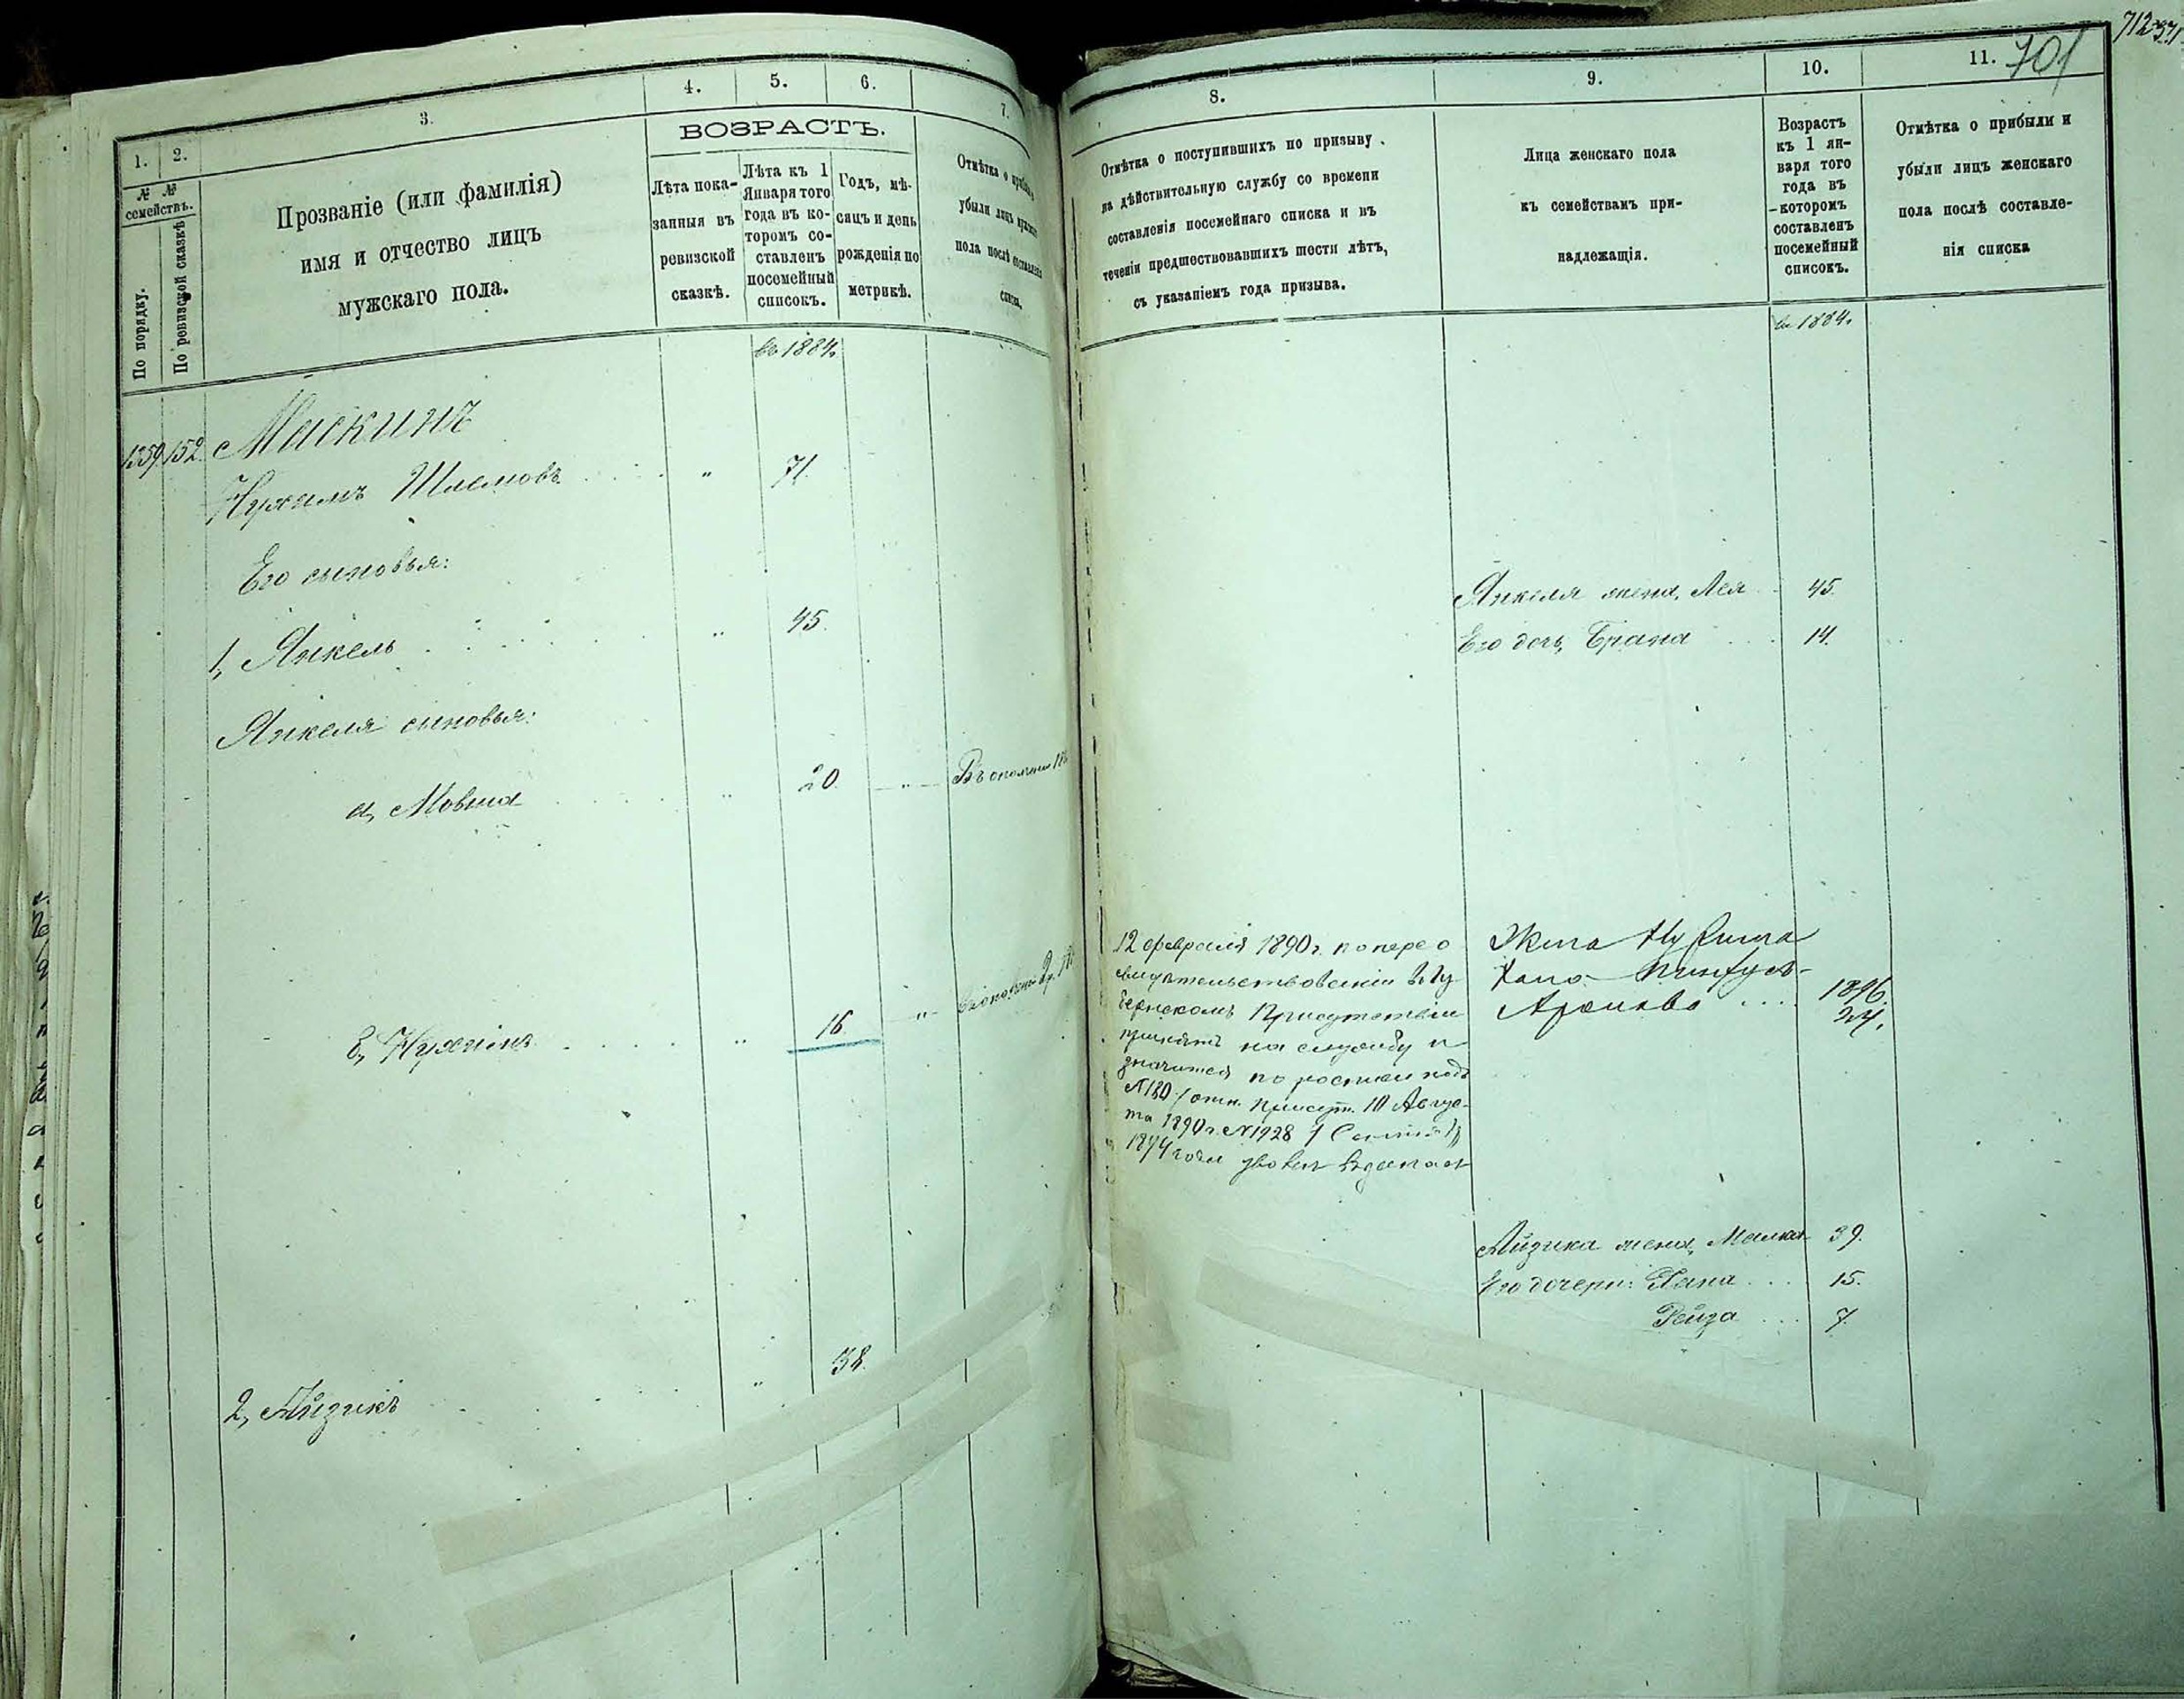 1.
2.
3.
4.
5.
6.
7.
ВОЗРАСТЪ.
№ №
семействъ.
По порядку.
По ревизской сказкѣ
Прозваніе (или фамилія)
имя и отчество лицъ
мужскаго пола.
Лѣта пока-
занныя въ
ревизской
сказкѣ.
Лѣта къ 1
Января того
года въ ко-
торомъ со-
ставленъ
посемейный
списокъ.
Годъ, мѣ-
сяцъ и день
рожденія по
метрикѣ.
Отмѣтка о прибыли
убыли лицъ мужскаго
пола послѣ составленія
списка.
въ 1884.
1359 152 Маскинъ
Нухимъ Шлемовъ " 71.
Его сыновья:
1, Янкель " 45.
Янкеля сыновья:
а, Мовша " 20. " Въ ополченіи
б, Нухимъ " 16 "
2, Айзикъ " 38.
712
701
8.
9.
10.
11.
Отмѣтка о поступившихъ по призыву
на дѣйствительную службу со времени
составленія посемейнаго списка и въ
теченіи предшествовавшихъ шести лѣтъ,
съ указаніемъ года призыва.
Лица женскаго пола
къ семействамъ при-
надлежащія.
Возрастъ
къ 1 ян-
варя того
года въ
которомъ
составленъ
посемейный
списокъ.
Отмѣтка о прибыли и
убыли лицъ женскаго
пола послѣ составле-
нія списка
въ 1884.
Янкеля жена, Лея 45.
Его дочь, Брана 14.
12 февраля 1890 г. по перео
свидѣтельствованіи въ Гу
бернскомъ Присутствіи
принятъ на службу и
значится по росписи подъ
№ 180 / отн. присут. 10 Авгус-
та 1890 г. № 1928
Жена Нухима
Хана
1896.
24.
Айзика жена, Малка 39.
Его дочери: Хана 15.
Рейза 7.